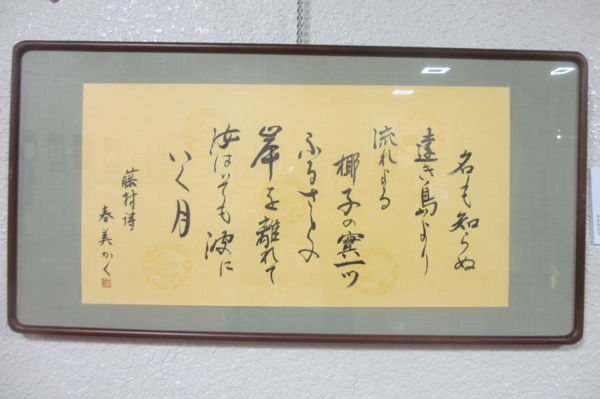 名も知らぬ
遠き島より
流れよる
椰子の實一つ
ふるさとの
岸を離れて
汝はそも波に
いく月
藤村詩
春美かく